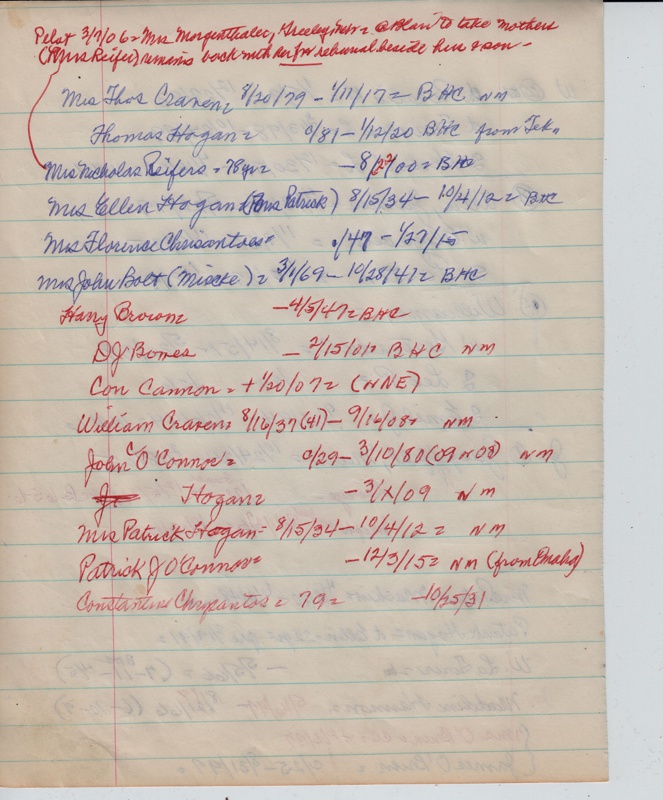 Pilot 3/7/06 = Mrs Morgenthaler, Greeley, Nebr = @ Blair to take mothers
(Mrs Reifer) remains back with her for reburial beside her son -
Mrs Thos Craven = 8/20/79 - 1/11/17 = BHC NM
Thomas Hogan = 0/81 - 1/12/20 BHC from Tek,,
Mrs Nicholas Reifers = 78yr = - 8/27/00 = BHC
Mrs Ellen Hogan (Mrs Patrick) 8/15/34 - 10/4/12 = BHC
Mrs Florence Chrisantoes = 0/47 - 1/27/15
Mrs John Bolt (Miecke) = 3/1/69 - 10/28/47 = BHC
Harry Brown = - 4/5/47 = BHC
D J Bowes - 2/15/01 = BHC NM
Con Cannon = + 1/20/07 = (NNE)
William Craven = 8/16/37 (41) - 9/16/08 = NM
John C O'Connor = 0/29 - 3/10/80 (09 N 08) NM
Hogan = - 3/X/09 NM
Mrs Patrick Hogan - 8/15/34 - 10/4/12 = NM
Patrick J O'Connor = - 12/3/15 = NM (from Omaha)
Constantine Chrysantos = 79 = - 10/25/31